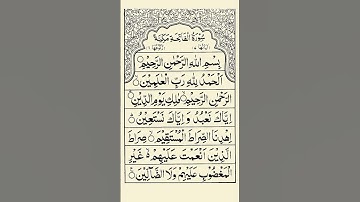 سُوْرَةُ الْفَاتِحَةِ مَكِّيَّةٌ
بِسْمِ اللهِ الرَّحْمٰنِ الرَّحِيْمِ
اَلْحَمْدُ لِلهِ رَبِّ الْعٰلَمِيْنَ
الرَّحْمٰنِ الرَّحِيْمِ مٰلِكِ يَوْمِ الدِّيْنِ
اِيَّاكَ نَعْبُدُ وَ اِيَّاكَ نَسْتَعِيْنُ
اِهْدِنَا الصِّرَاطَ الْمُسْتَقِيْمَ صِرَاطَ
الَّذِيْنَ اَنْعَمْتَ عَلَيْهِمْ غَيْرِ
الْمَغْضُوْبِ عَلَيْهِمْ وَلَا الضَّآلِّيْنَ